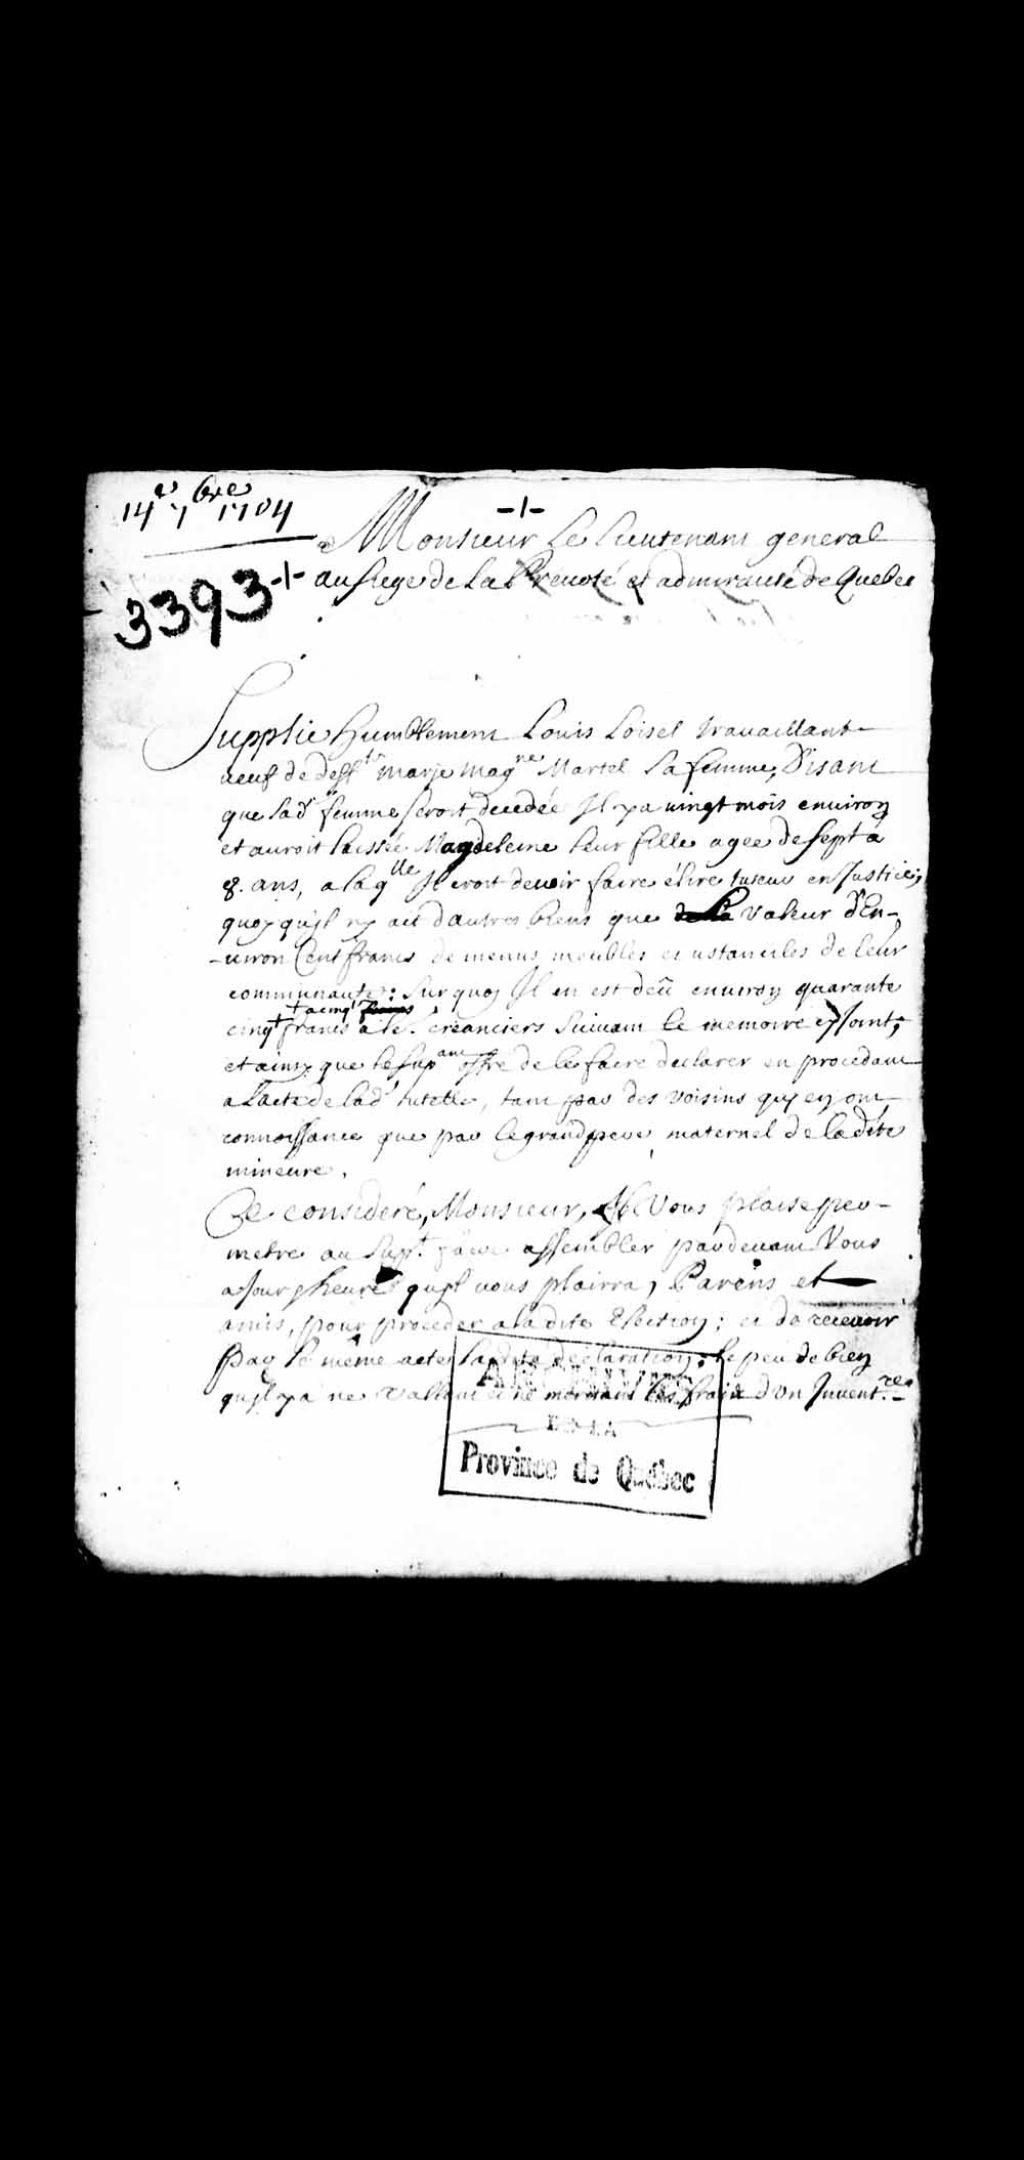 14e 7bre 1704
-/-
Monsieur Le Lieutenant general
3393
-/- au siege de La Prevoté et admirauté de Quebec
Supplie Humblement Louis Loisel travaillant
veuf de deffte marie magne Martel Sa femme, Disant
que Lad femme seroit decedée Il y a vingt mois environ
et auroit laissée Magdeleine leur fille agee de sept a
8. ans, a laqlle Il croit devoir faire élire tuteur en Justice,
quoy quil ny ait dautres biens que de La valeur d'En-
-viron Cent francs de menus meubles et ustancilles de leur
communauté: Sur quoy Il en est deü environ quarante
+ a cinq
cinq + francs a le. creanciers Suivant Le memoire cy Joint;
et ainsy que le supant offre de les faire declarer en procedant
a Lacte de Lad tutelle, tant par des voisins quy en ont
connoissance que par le grand pere maternel de la dite
mineure.
Ce considéré, Monsieur, Il Vous plaise per-
metre au Suppt. faire assembler pardevant Vous
a Jour & heure quil vous plairra, Parens et
amis, pour proceder a la dite Election; et de recevoir
par le même acte la dite declaration; Le peu de bien
quil y a ne vallant les frais d'un Inventre.
ARCHIVES
DE LA
Province de Québec